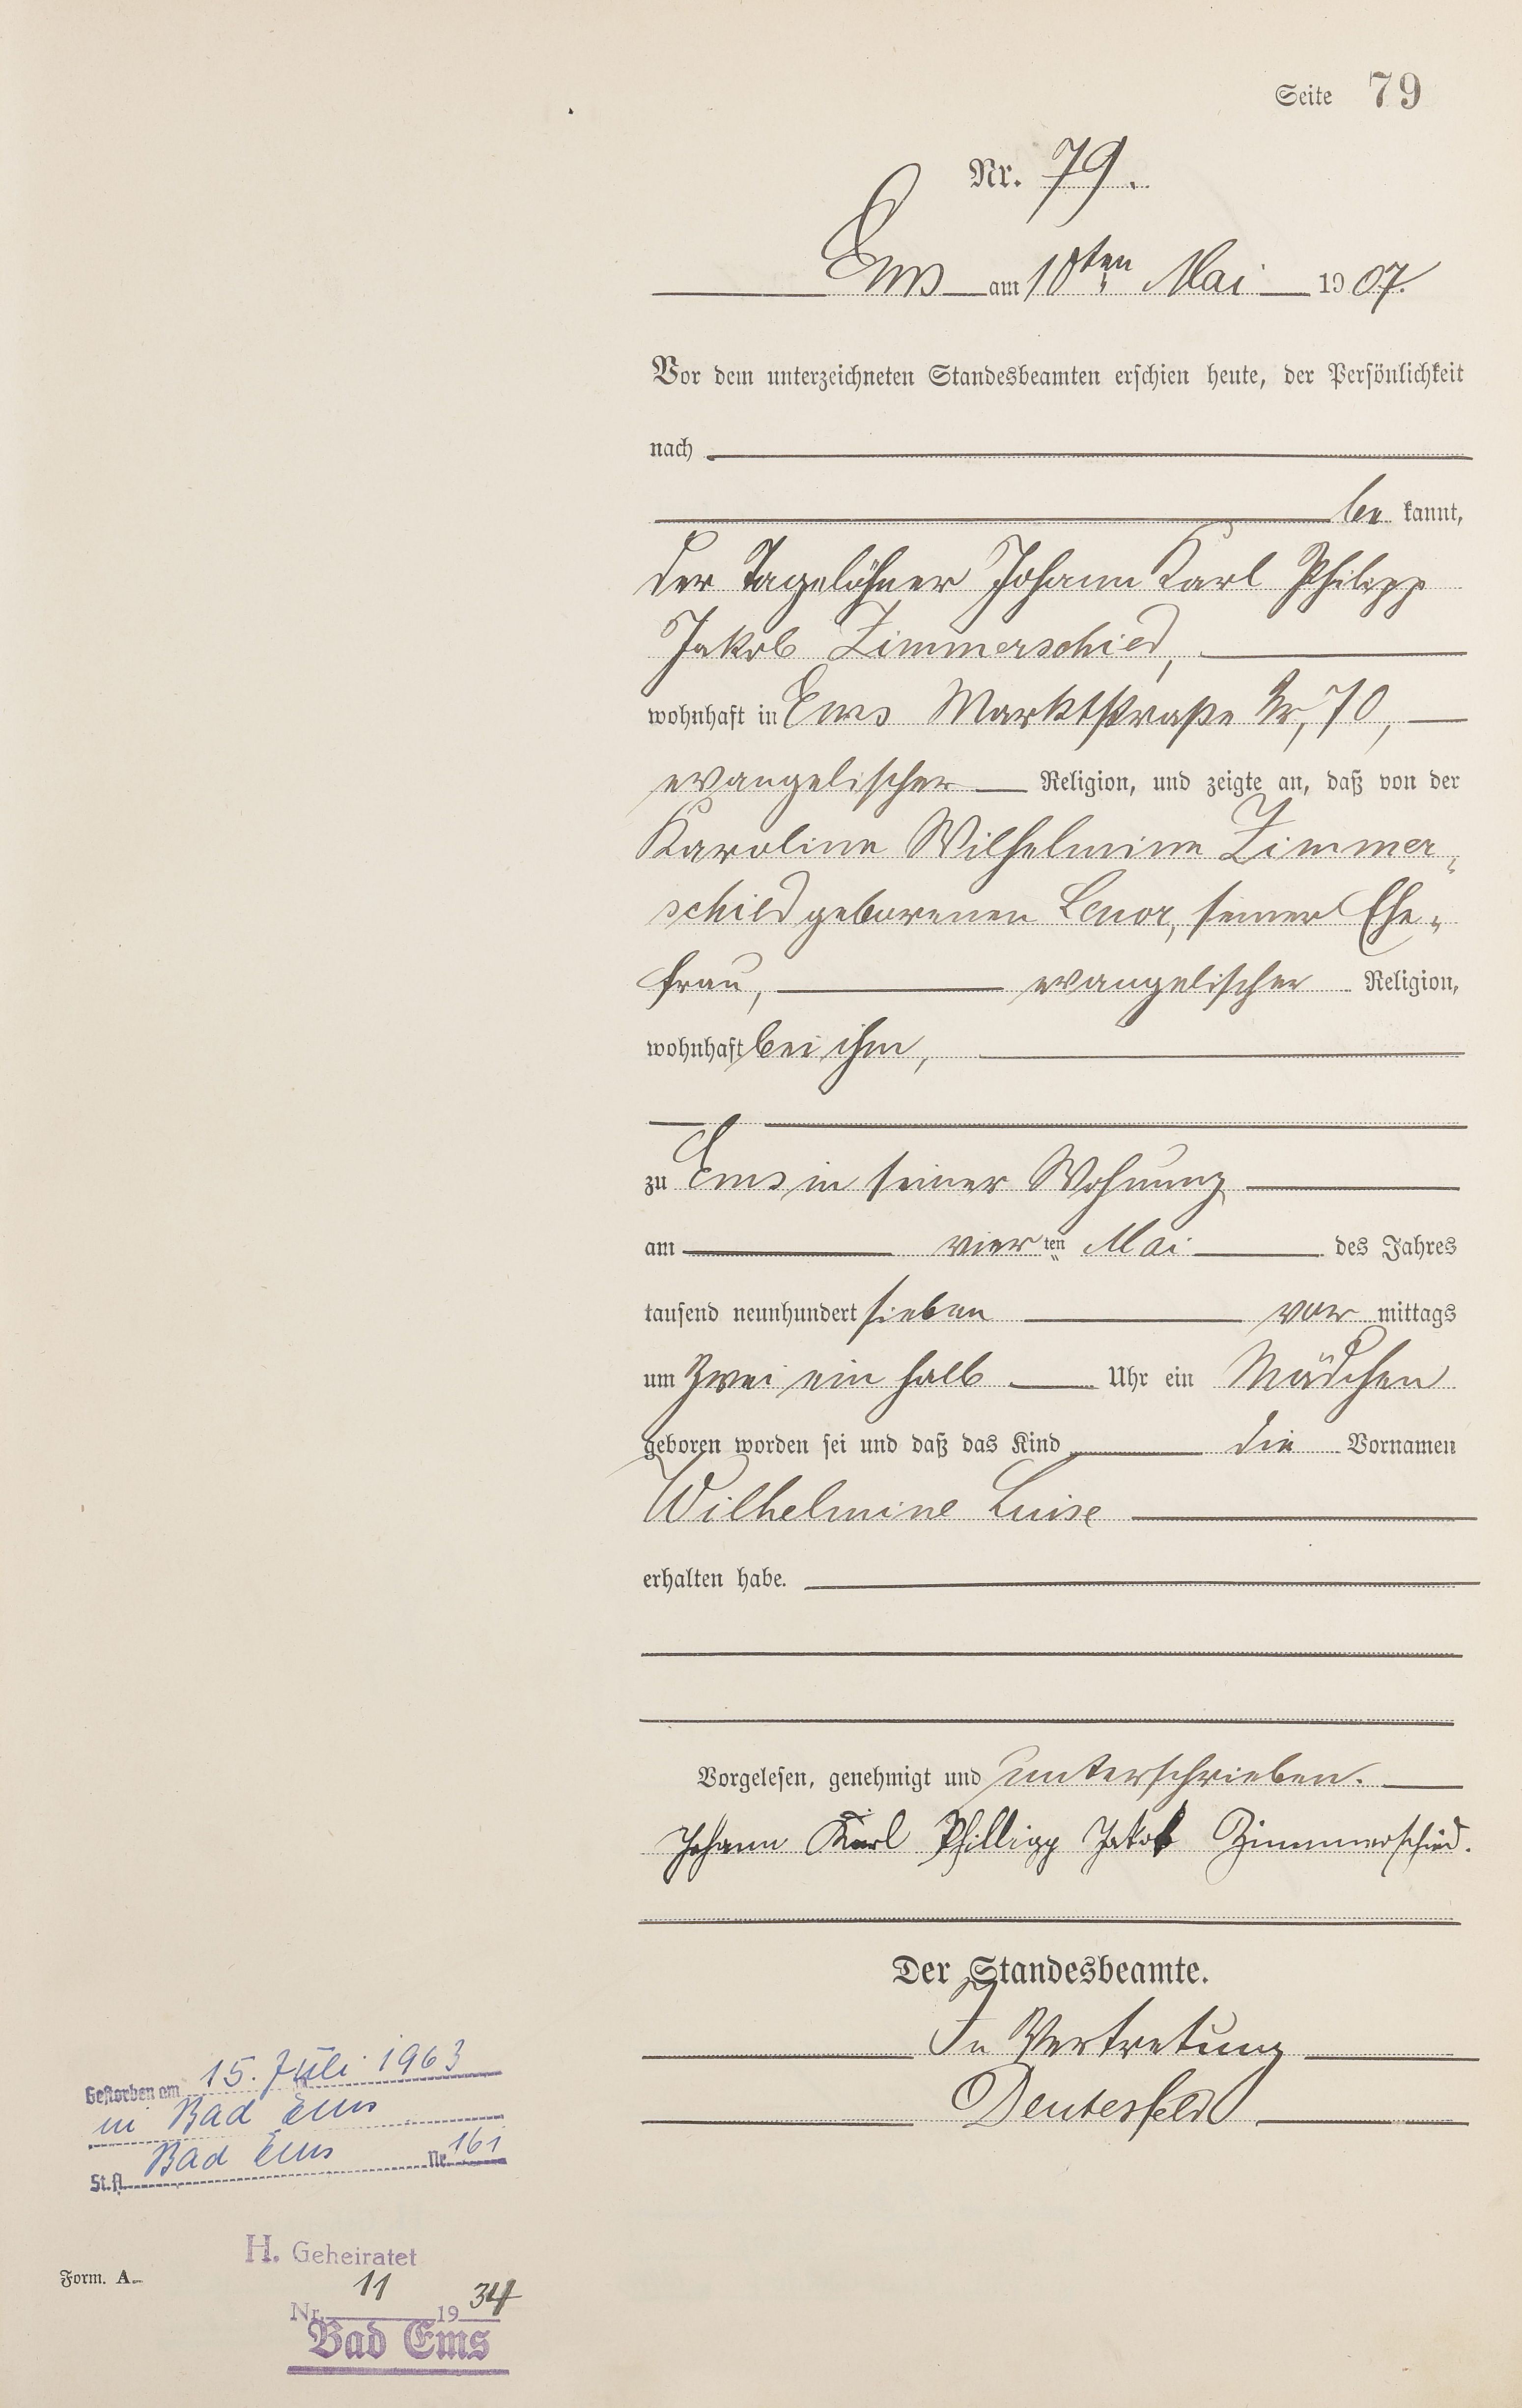 Seite 79
Nr. 79.
Ems am 10ten Mai 1907.
Vor dem unterzeichneten Standesbeamten erschien heute, der Persönlichkeit
nach
be kannt,
der Tagelöhner Johann Karl Philipp
Jakob Zimmerschied,
wohnhaft in Ems Marktstraße Nr, 70,
evangelischer Religion, und zeigte an, daß von der
Karoline Wilhelmine Zimmer-
schied geborenen Lenor, seiner Ehe-
frau, evangelischer Religion,
wohnhaft bei ihm,
zu Ems in seiner Wohnung
am vierten Mai des Jahres
tausend neunhundert sieben vor mittags
um zwei ein halb Uhr ein Mädchen
geboren worden sei und daß das Kind die Vornamen
Wilhelmine Luise
erhalten habe.
Vorgelesen, genehmigt und unterschrieben.
Johann Karl Phillipp Jakob Zimmerschied.
Der Standesbeamte.
In Vertretung
Deutesfeld
Gestorben am 15. Juli 1963
in Bad Ems
St.A. Bad Ems Nr. 161
H. Geheiratet
Nr. 11 1934
Bad Ems
Form. A.